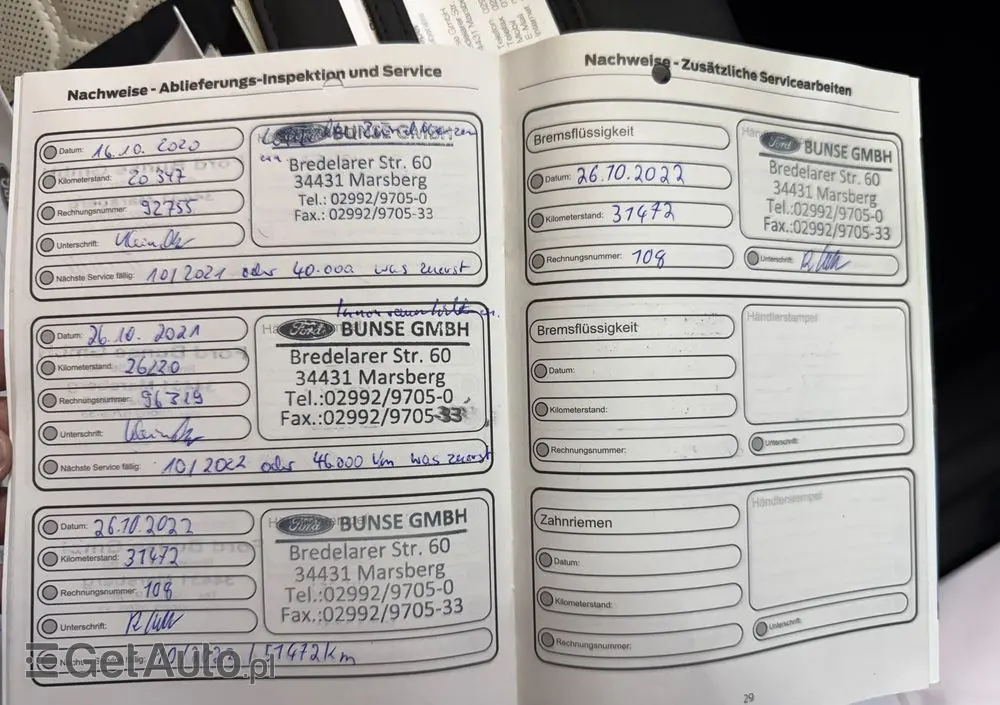 Nachweise - Ablieferungs-Inspektion und Service
Datum: 16.10.2020
Kilometerstand: 20 347
Rechnungsnummer: 92755
Unterschrift:
Nächste Service fällig: 10/2021 oder 40.000 was zuerst
BUNSE GMBH
Bredelarer Str. 60
34431 Marsberg
Tel.: 02992/9705-0
Fax.: 02992/9705-33
Datum: 26.10.2021
Kilometerstand: 26120
Rechnungsnummer: 96319
Unterschrift:
Nächste Service fällig: 10/2022 oder 46.000 km was zuerst
Ford BUNSE GMBH
Bredelarer Str. 60
34431 Marsberg
Tel.:02992/9705-0
Fax.:02992/9705-33
Datum: 26.10.2022
Kilometerstand: 31472
Rechnungsnummer: 108
Unterschrift:
51472 km
Ford BUNSE GMBH
Bredelarer Str. 60
34431 Marsberg
Tel.:02992/9705-0
Fax.:02992/9705-33
GetAuto.pl
Nachweise - Zusätzliche Servicearbeiten
Bremsflüssigkeit
Datum: 26.10.2022
Kilometerstand: 31472
Rechnungsnummer: 108
Ford BUNSE GMBH
Bredelarer Str. 60
34431 Marsberg
Tel.:02992/9705-0
Fax.:02992/9705-33
Unterschrift:
Bremsflüssigkeit
Datum:
Kilometerstand:
Rechnungsnummer:
Händlerstempel
Unterschrift:
Zahnriemen
Datum:
Kilometerstand:
Rechnungsnummer:
Händlerstempel
Unterschrift:
29